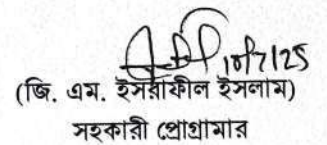 10/7/25
(জি. এম. ইসরাফীল ইসলাম)
সহকারী প্রোগ্রামার